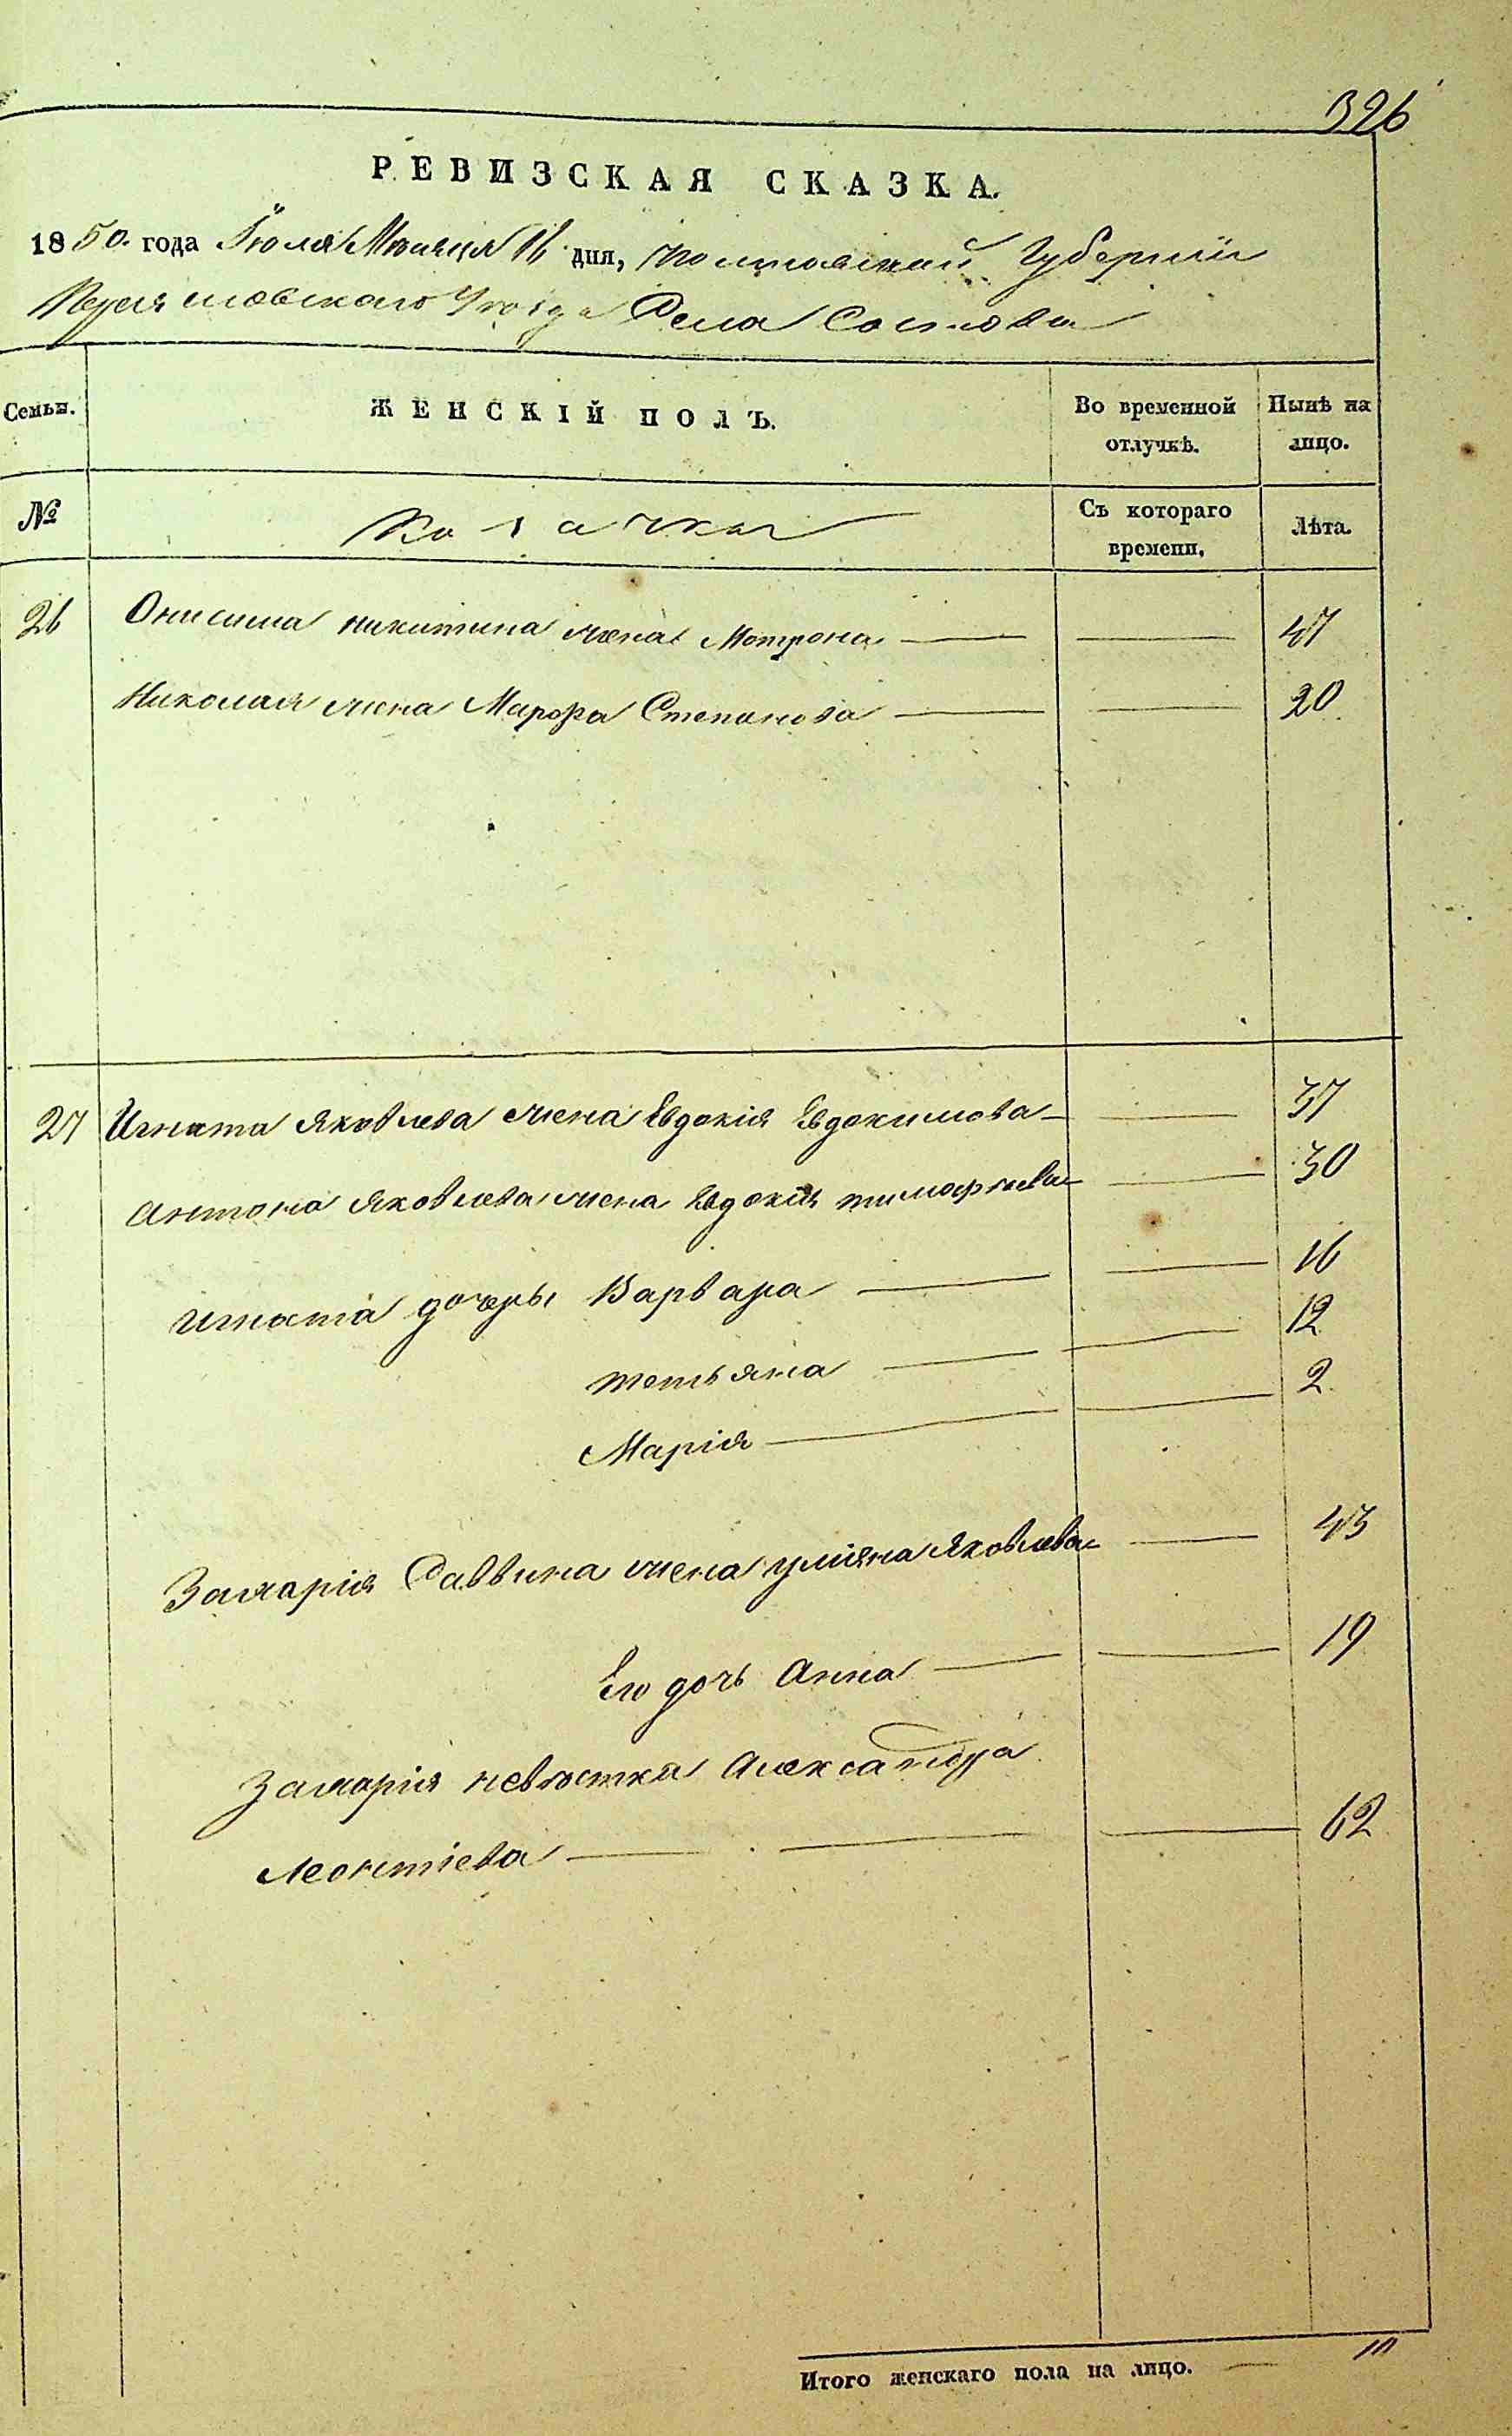 326
РЕВИЗСКАЯ СКАЗКА.
1850. года Іюля Мѣсяца 16 дня, Полтавской Губерніи
Переяславскаго Уѣзда Села Сосновки
Семьи. ЖЕНСКІЙ ПОЛЪ. Во временной отлучкѣ. Нынѣ на лицо.
№ Козачки Съ котораго времени, Лѣта.
26 Онисима никитина жена Мотрона 47
Николая жена Марфа Степанова 20
27 Игната Яковлева жена Евдокія Евдокимова 37
Антона Яковлева жена Евдокія тимофѣева 30
игната дочеры Варвара 16
тетьяна 12
Марія 2
Захарія Саввина жена уліяна Яковлева 43
Его дочь Анна 19
Захарія невѣстка Александра
Леонтіева 62
Итого женскаго пола на лицо. 10